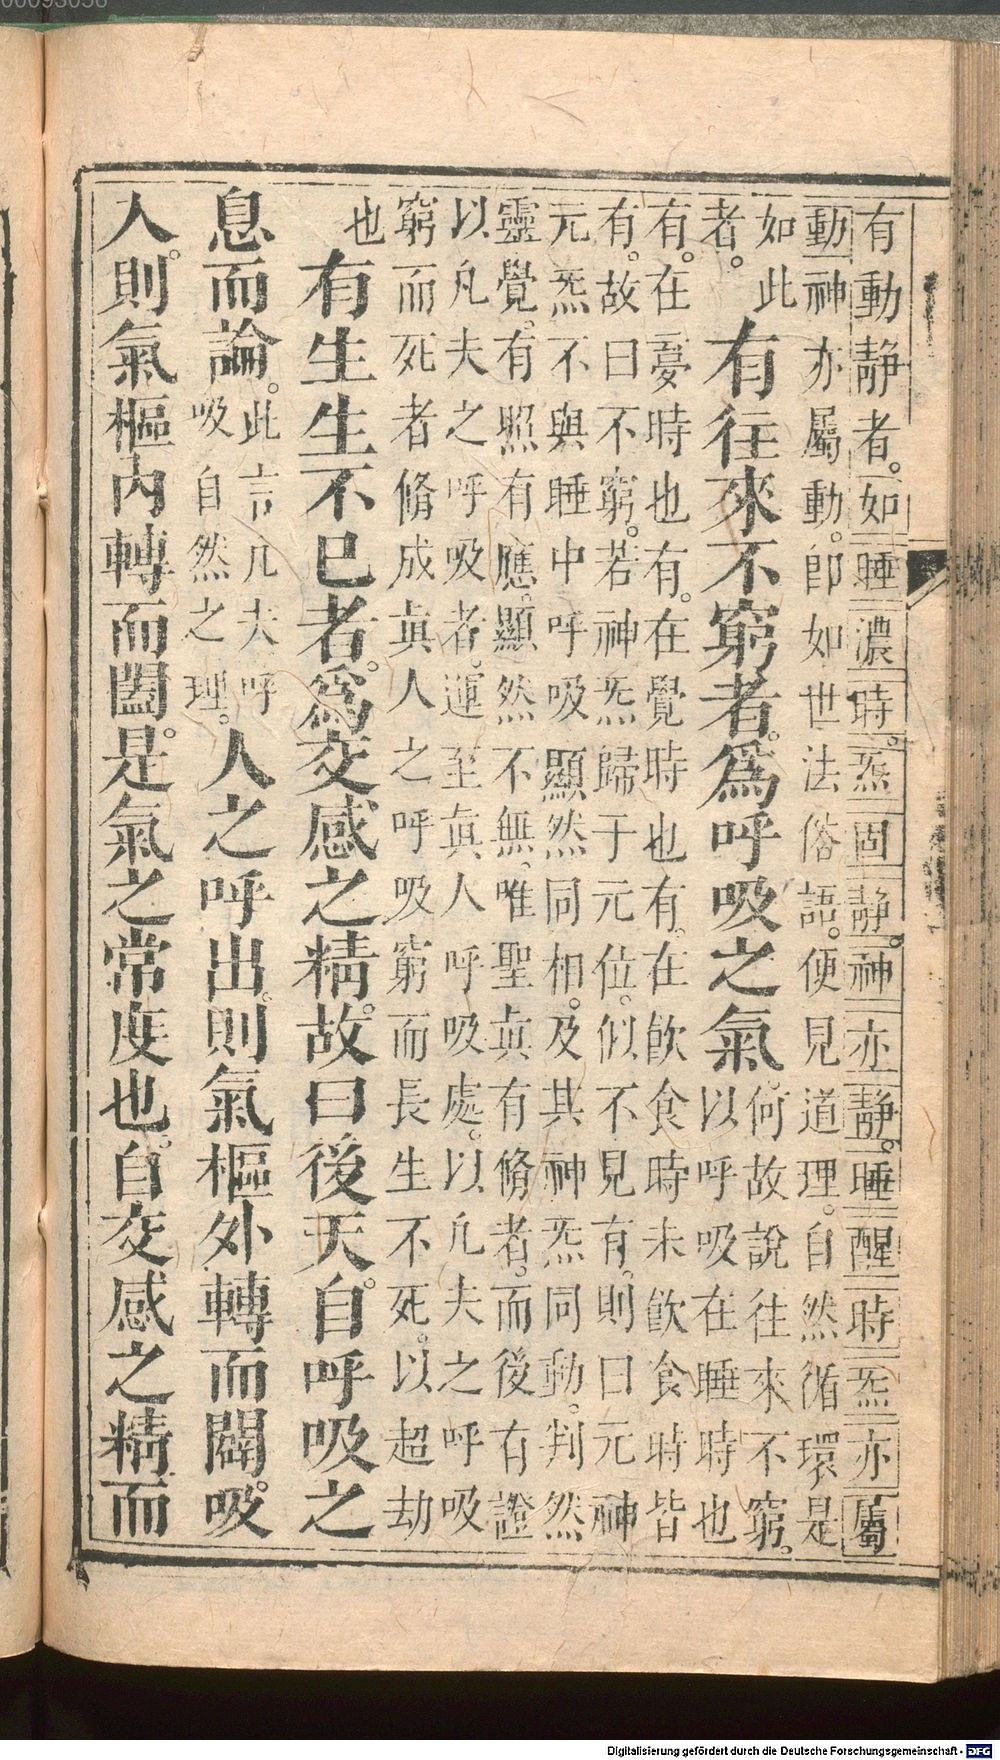 有動靜者。如睡濃時。炁固靜。神亦靜。睡醒時炁亦屬
動神亦屬動。即如世法俗語。便見道理。自然循環是
如此
者。
有往來不窮者。爲呼吸之氣。
何故說往來不窮。
以呼吸在睡時也
有。在夢時也有。在覺時也有。在飲食時未飲食時皆
有。故曰不窮。若神炁歸于元位。似不見有。則曰元神
元炁不與睡中呼吸顯然同相。及其神炁同動。判然
靈覺。有照有應。顯然不無。唯聖眞有脩者。而後有證
以凡夫之呼吸者。運至眞人呼吸處。以凡夫之呼吸
窮而死者脩成眞人之呼吸窮而長生不死。以超劫
也
有生生不已者。爲交感之精。故曰後天。自呼吸之
息而論。
此言凡夫呼
吸自然之理。
人之呼出。則氣樞外轉而闢。吸
入。則氣樞內轉而闔。是氣之常度也。自交感之精而
Digitalisierung gefördert durch die Deutsche Forschungsgemeinschaft - DFG